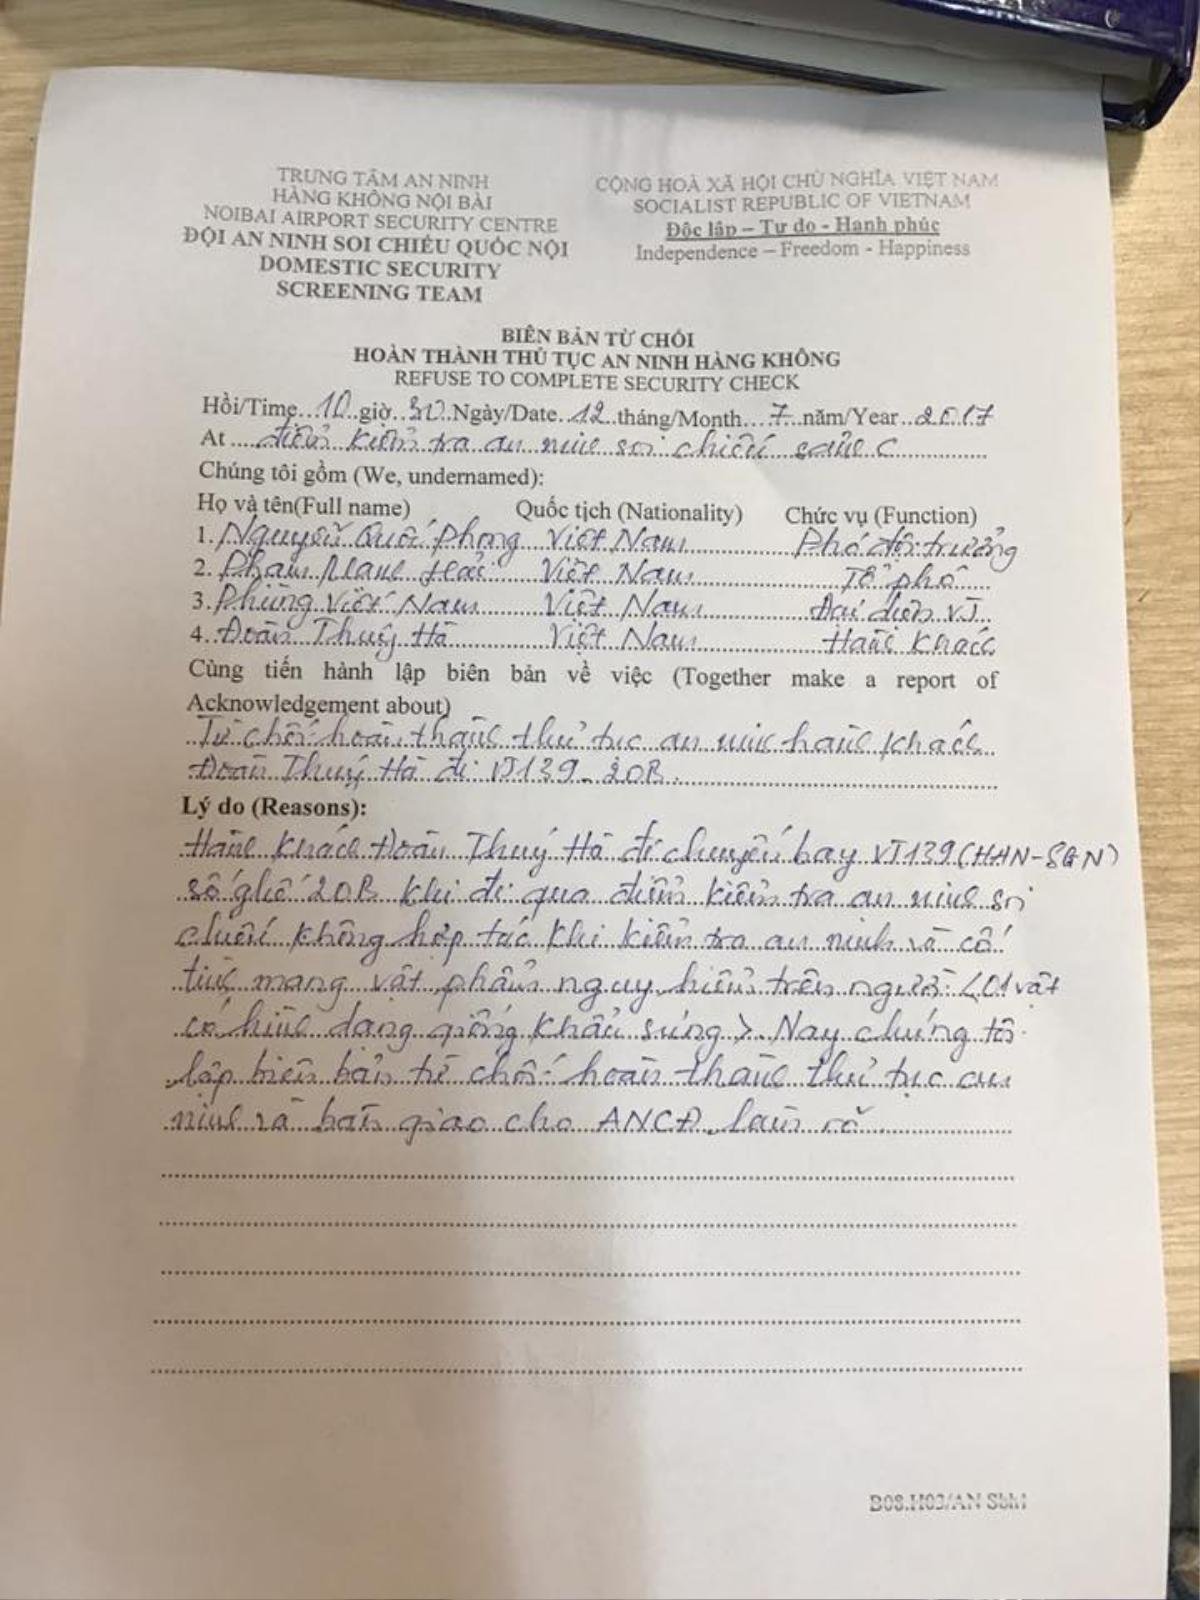 TRUNG TÂM AN NINH
HÀNG KHÔNG NỘI BÀI
NOIBAI AIRPORT SECURITY CENTRE
ĐỘI AN NINH SOI CHIẾU QUỐC NỘI
DOMESTIC SECURITY
SCREENING TEAM
CỘNG HOÀ XÃ HỘI CHỦ NGHĨA VIỆT NAM
SOCIALIST REPUBLIC OF VIETNAM
Độc lập – Tự do - Hạnh phúc
Independence – Freedom - Happiness
BIÊN BẢN TỪ CHỐI
HOÀN THÀNH THỦ TỤC AN NINH HÀNG KHÔNG
REFUSE TO COMPLETE SECURITY CHECK
Hồi/Time 10 giờ 30 Ngày/Date 12 tháng/Month 7 năm/Year 2017
At điểm kiểm tra an ninh soi chiếu sảnh C
Chúng tôi gồm (We, undernamed):
Họ và tên(Full name) Quốc tịch (Nationality) Chức vụ (Function)
1. Nguyễn Quốc Phong Việt Nam Phó đội trưởng
2. Phạm Mạnh Hải Việt Nam Tổ phó
3. Phùng Viết Nam Việt Nam Đại diện VJ
4. Đoàn Thuý Hà Việt Nam Hành khách
Cùng tiến hành lập biên bản về việc (Together make a report of
Acknowledgement about)
Từ chối hoàn thành thủ tục an ninh hành khách
Đoàn Thuý Hà đi VJ139 - 20B.
Lý do (Reasons):
Hành khách Đoàn Thuý Hà đi chuyến bay VJ139 (HAN-SGN)
số ghế 20B khi đi qua điểm kiểm tra an ninh soi
chiếu không hợp tác khi kiểm tra an ninh và cố
tình mang vật phẩm nguy hiểm trên người <01 vật
có hình dạng giống khẩu súng>. Nay chúng tôi
lập biên bản từ chối hoàn thành thủ tục an
ninh và bàn giao cho ANCĐ làm rõ
B08.H03/AN